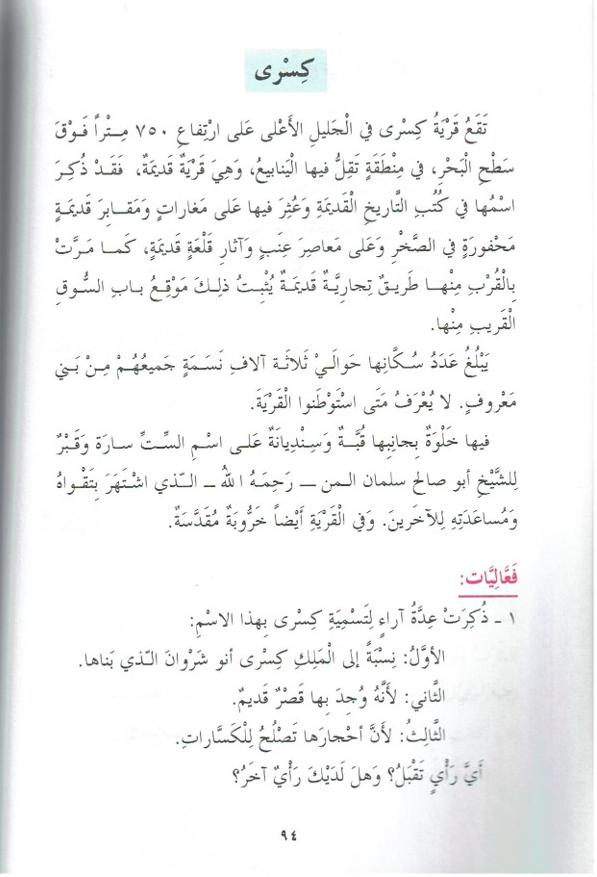 كِسْرى
تَقَعُ قَرْيَةُ كِسْرى في الْجَليلِ الأَعْلى عَلى ارْتِفاعِ ٧٥٠ مِـتْراً فَـوْقَ
سَطْحِ الْبَحْرِ، في مِنْطَقَةٍ تَقِلُّ فيها الْيَنابيعُ، وَهِيَ قَرْيَةٌ قَديمَةٌ، فَقَدْ ذُكِرَ
اسْمُها في كُتُبِ التّاريخِ الْقَديمَةِ وَعُثِرَ فيها عَلى مَغاراتٍ وَمَقـابِرَ قَديمَـةٍ
مَحْفورَةٍ في الصَّخْرِ وَعَلى مَعاصِرِ عِنَبٍ وَآثارِ قَلْعَةٍ قَديمَةٍ، كَمـا مَـرَّتْ
بِالْقُرْبِ مِنْهـا طَريـقٌ تِجارِيَّـةٌ قَديمَـةٌ يُثْبِـتُ ذلِـكَ مَوْقِـعُ بـابِ السُّـوقِ
الْقَريبِ مِنْها.
يَبْلُغُ عَدَدُ سُكَّانِها حَوالَيْ ثَلاثَـةِ آلافِ نَسَمَةٍ جَميعُهُـمْ مِـنْ بَـني
مَعْروفٍ. لا يُعْرَفُ مَتَى اسْتَوْطَنوا الْقَرْيَةَ.
فيها خَلْوَةٌ بِجانِبِها قُبَّـةٌ وَسِنْدِيانَةٌ عَلـى اسْـمِ السِّـتِّ سـارَة وَقَـبْرٌ
لِلشَّيْخِ أبو صالح سلمان المـن ــ رَحِمَـهُ اللهُ ــ الـذّي اشْـتَهَرَ بِتَقْـواهُ
وَمُساعَدَتِهِ لِلآخَرينَ. وَفي الْقَرْيَةِ أَيْضاً خَرُّوبَةٌ مُقَدَّسَةٌ.
فَعَّالِيَّات:
١ ـ ذُكِرَتْ عِدَّةُ آراءٍ لِتَسْمِيَةِ كِسْرى بِهذا الاسْمِ:
الأوَّلُ: نِسْبَةً إلى الْمَلِكِ كِسْرى أنو شَرْوانَ الـذّي بَناها.
الثَّاني: لأَنَّهُ وُجِدَ بِها قَصْرٌ قَديمٌ.
الثَّالِثُ: لأَنَّ أحْجارَها تَصْلُحُ لِلْكَسَّاراتِ.
أَيَّ رَأْيٍ تَقْبَلُ؟ وَهلَ لَدَيْكَ رَأْيٌ آخَرُ؟
٩٤